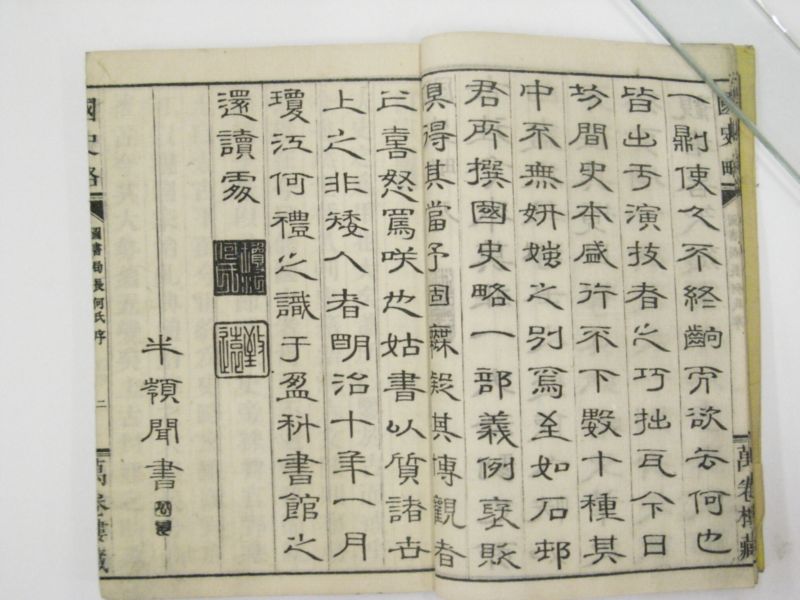 國史略
萬卷樓藏
一劇使人不終齣而欲去何也
皆出于演技者之巧拙耳今日
坊間史本盛行不下數十種其
中不無妍媸之別焉至如石邨
君所撰國史略一部義例褒貶
得其當予固無疑其傳觀者
之喜怒焉咲也姑書以質諸世
上之非矮人者明治十年一月
瓊江何禮之識于盈科書館之
還讀處
瓊江何氏
半嶺聞書
國史略
圖書局長何氏序
二
萬卷樓藏